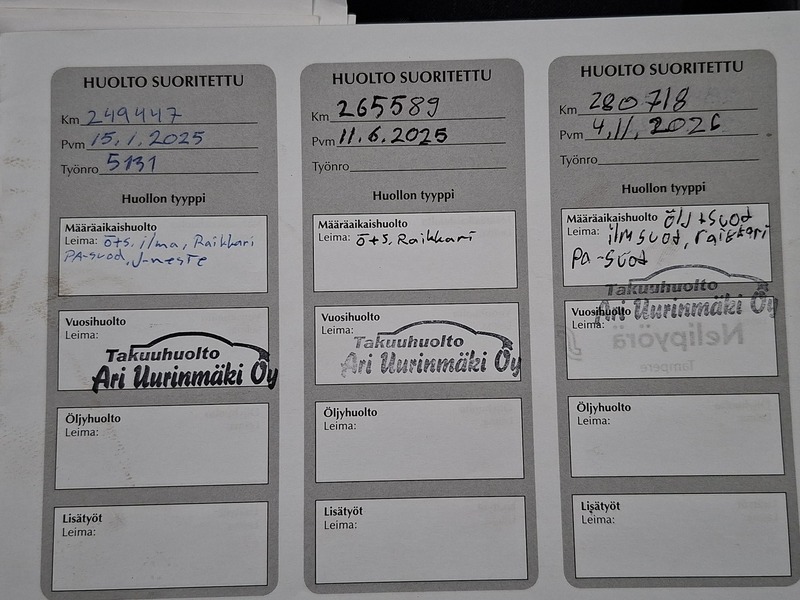 HUOLTO SUORITETTU
Km 249447
Pvm 15.1.2025
Työnro 5131
Huollon tyyppi
Määräaikaishuolto
Leima: ö+s, ilma, Raikkari
PA-suod, J-neste
Vuosihuolto
Leima:
Takuuhuolto
Ari Uurinmäki Oy
Öljyhuolto
Leima:
Lisätyöt
Leima:
HUOLTO SUORITETTU
Km 265589
Pvm 11.6.2025
Työnro
Huollon tyyppi
Määräaikaishuolto
Leima: ö+s, Raikkari
Vuosihuolto
Leima:
Takuuhuolto
Ari Uurinmäki Oy
Öljyhuolto
Leima:
Lisätyöt
Leima:
HUOLTO SUORITETTU
Km 280718
Pvm 4.11.2026
Työnro
Huollon tyyppi
Määräaikaishuolto ölj+suod
Leima: ilmsuod, raikkari
PA-suod
Takuuhuolto
Ari Uurinmäki Oy
Vuosihuolto
Leima:
Nelipyörä
Tampere
Öljyhuolto
Leima:
Lisätyöt
Leima: